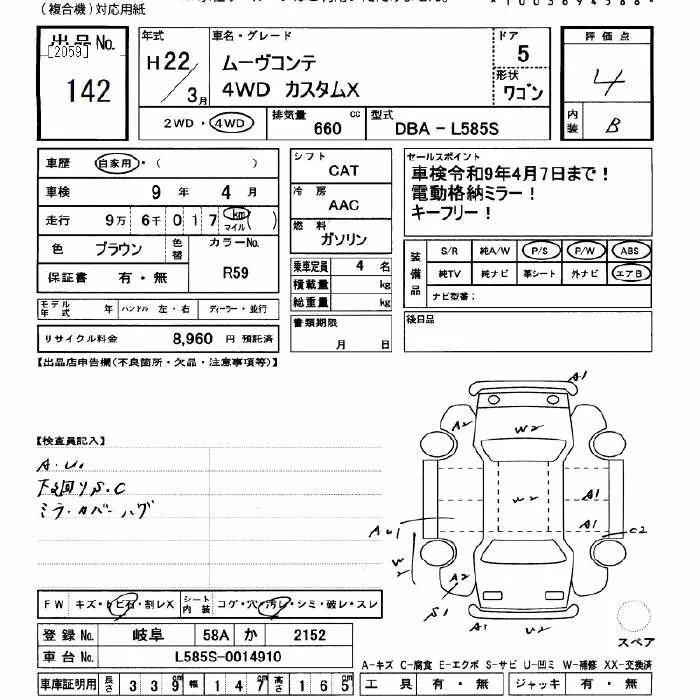 (複合機)対応用紙
出品 No.
[2059]
142
年式
H22
/3月
車名・グレード
ムーヴコンテ
4WD カスタムX
ドア
5
形状
ワゴン
評価点
4
内装
B
2WD・4WD
排気量
660 cc
型式
DBA - L585S
車歴 自家用・( )
車検 9年 4月
走行 9万 6千 017 km マイル ( )
色 ブラウン 色替
カラーNo.
R59
保証書 有・無
シフト
CAT
冷房
AAC
燃料
ガソリン
乗車定員 4 名
積載量 kg
総重量 kg
セールスポイント
車検令和9年4月7日まで！
電動格納ミラー！
キーフリー！
装備品
S/R 純A/W P/S P/W ABS
純TV 純ナビ 革シート 外ナビ エアB
ナビ型番：
モデル年式 年 ハンドル 左・右 ディーラー・並行
リサイクル料金 8,960 円 預託済
書類期限
月 日
後日品
【出品店申告欄(不良箇所・欠品・注意事項等)】
【検査員記入】
A・U.
下回りS.C
ミラーカバーハゲ
A1
A2
W2
W2
A1
A1
C2
AU1
W2
A2
S1
A1
U2
スペア
FW キズ・トビ石・割レX
シート内装 コゲ・穴・汚レ・シミ・破レ・スレ
登録 No. 岐阜 58A か 2152
車台 No. L585S-0014910
車庫証明用 長さ 339cm 幅 147cm 高さ 165cm
A-キズ C-腐食 E-エクボ S-サビ U-凹ミ W-補修 XX-交換済
工具 有・無 ジャッキ 有・無